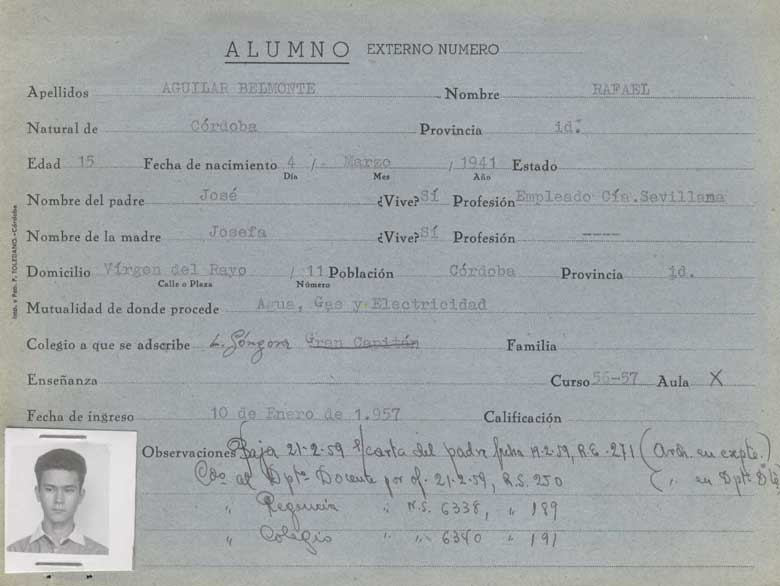 ALUMNO EXTERNO NUMERO
Apellidos AGUILAR BELMONTE Nombre RAFAEL
Natural de Córdoba Provincia id.
Edad 15 Fecha de nacimiento 4 / Marzo / 1941 Estado
Día Mes Año
Nombre del padre José ¿Vive? Sí Profesión Empleado Cía. Sevillana
Nombre de la madre Josefa ¿Vive? Sí Profesión ----
Domicilio Vírgen del Rayo / 11 Población Córdoba Provincia id.
Calle o Plaza Número
Mutualidad de donde procede Agua, Gas y Electricidad
Colegio a que se adscribe L. Góngora Gran Capitán Familia
Enseñanza Curso 56-57 Aula X
Fecha de ingreso 10 de Enero de 1.957 Calificación
Observaciones Baja 21-2-59 s/ carta del padre fecha 19-2-59, R.E. 271 (Arch. en expte.)
al Dptº Docente por of. 21-2-59, R.S. 250 (" en Dptº
" Regencia " N.S. 6338, " 189
" Colegio " " 6340 " 191
Imp. y Pap. F. TOLEDANO.-Córdoba